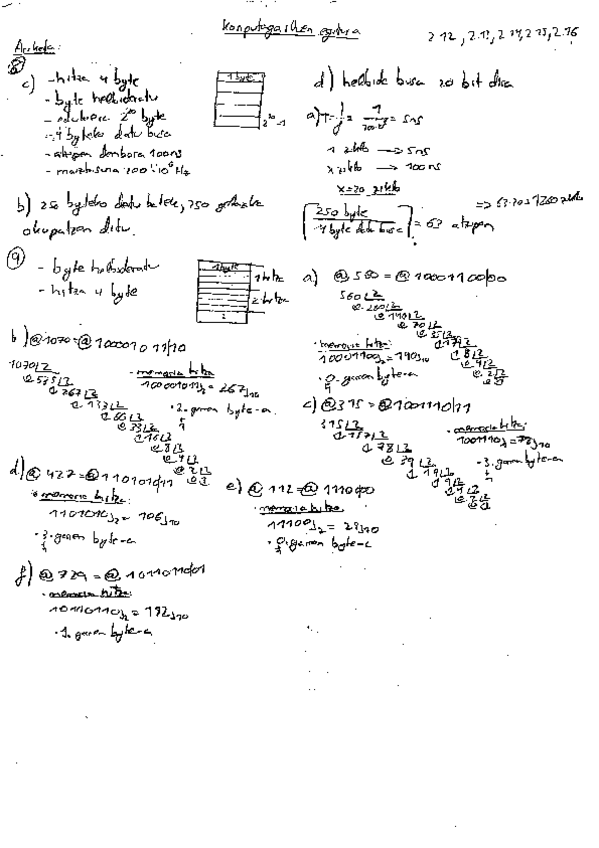 Konputagailuen egitura
2.12, 2.13, 2.14, 2.15, 2.16
Ariketa:
8
c) - hitza 4 byte
- byte helbideratu
- edukiera 2^20 byte
- 4 byteko datu busa
- atzipen denbora 100ns
- maiztasuna 200·10^6 Hz
1 byte
2^20-1
d) helbide busa 20 bit dira
a) T = 1/f = 1/200·10^6 = 5ns
1 ziklo → 5ns
x ziklo → 100ns
x=20 ziklo
b) 250 byteko datu batek, 250
okupatzen ditu.
⌈250 byte / 4 byte datu busa⌉ = 63 atzipen
=> 63·20=1260 ziklo
9
- byte helbideratu
- hitza 4 byte
1 byte
1 hitza
2 hitza
a) @560 = @10001100|00
560 |2
0 280 |2
0 140 |2
0 70 |2
0 35 |2
1 17 |2
1 8 |2
0 4 |2
0 2 |2
0 1
· memoria hitza:
10001100)2 = 140)10
· 0. garren byte-a
b) @1070 = @100001011|10
1070 |2
0 535 |2
1 267 |2
1 133 |2
1 66 |2
0 33 |2
1 16 |2
0 8 |2
0 4 |2
0 2 |2
0 1
- memoria hitza
100001011)2 = 267)10
· 2. garren byte-a
c) @315 = @1001110|11
315 |2
1 157 |2
1 78 |2
0 39 |2
1 19 |2
1 9 |2
1 4 |2
0 2 |2
0 1
· memoria hitza:
1001110)2 = 78)10
· 3. garren byte-a
d) @427 = @1101010|11
· memoria hitza:
1101010)2 = 106)10
· 3. garren byte-a
e) @112 = @11100|00
· memoria hitza
11100)2 = 28)10
· 0. garren byte-a
f) @729 = @10110110|01
· memoria hitza:
10110110)2 = 182)10
· 1. garren byte-a